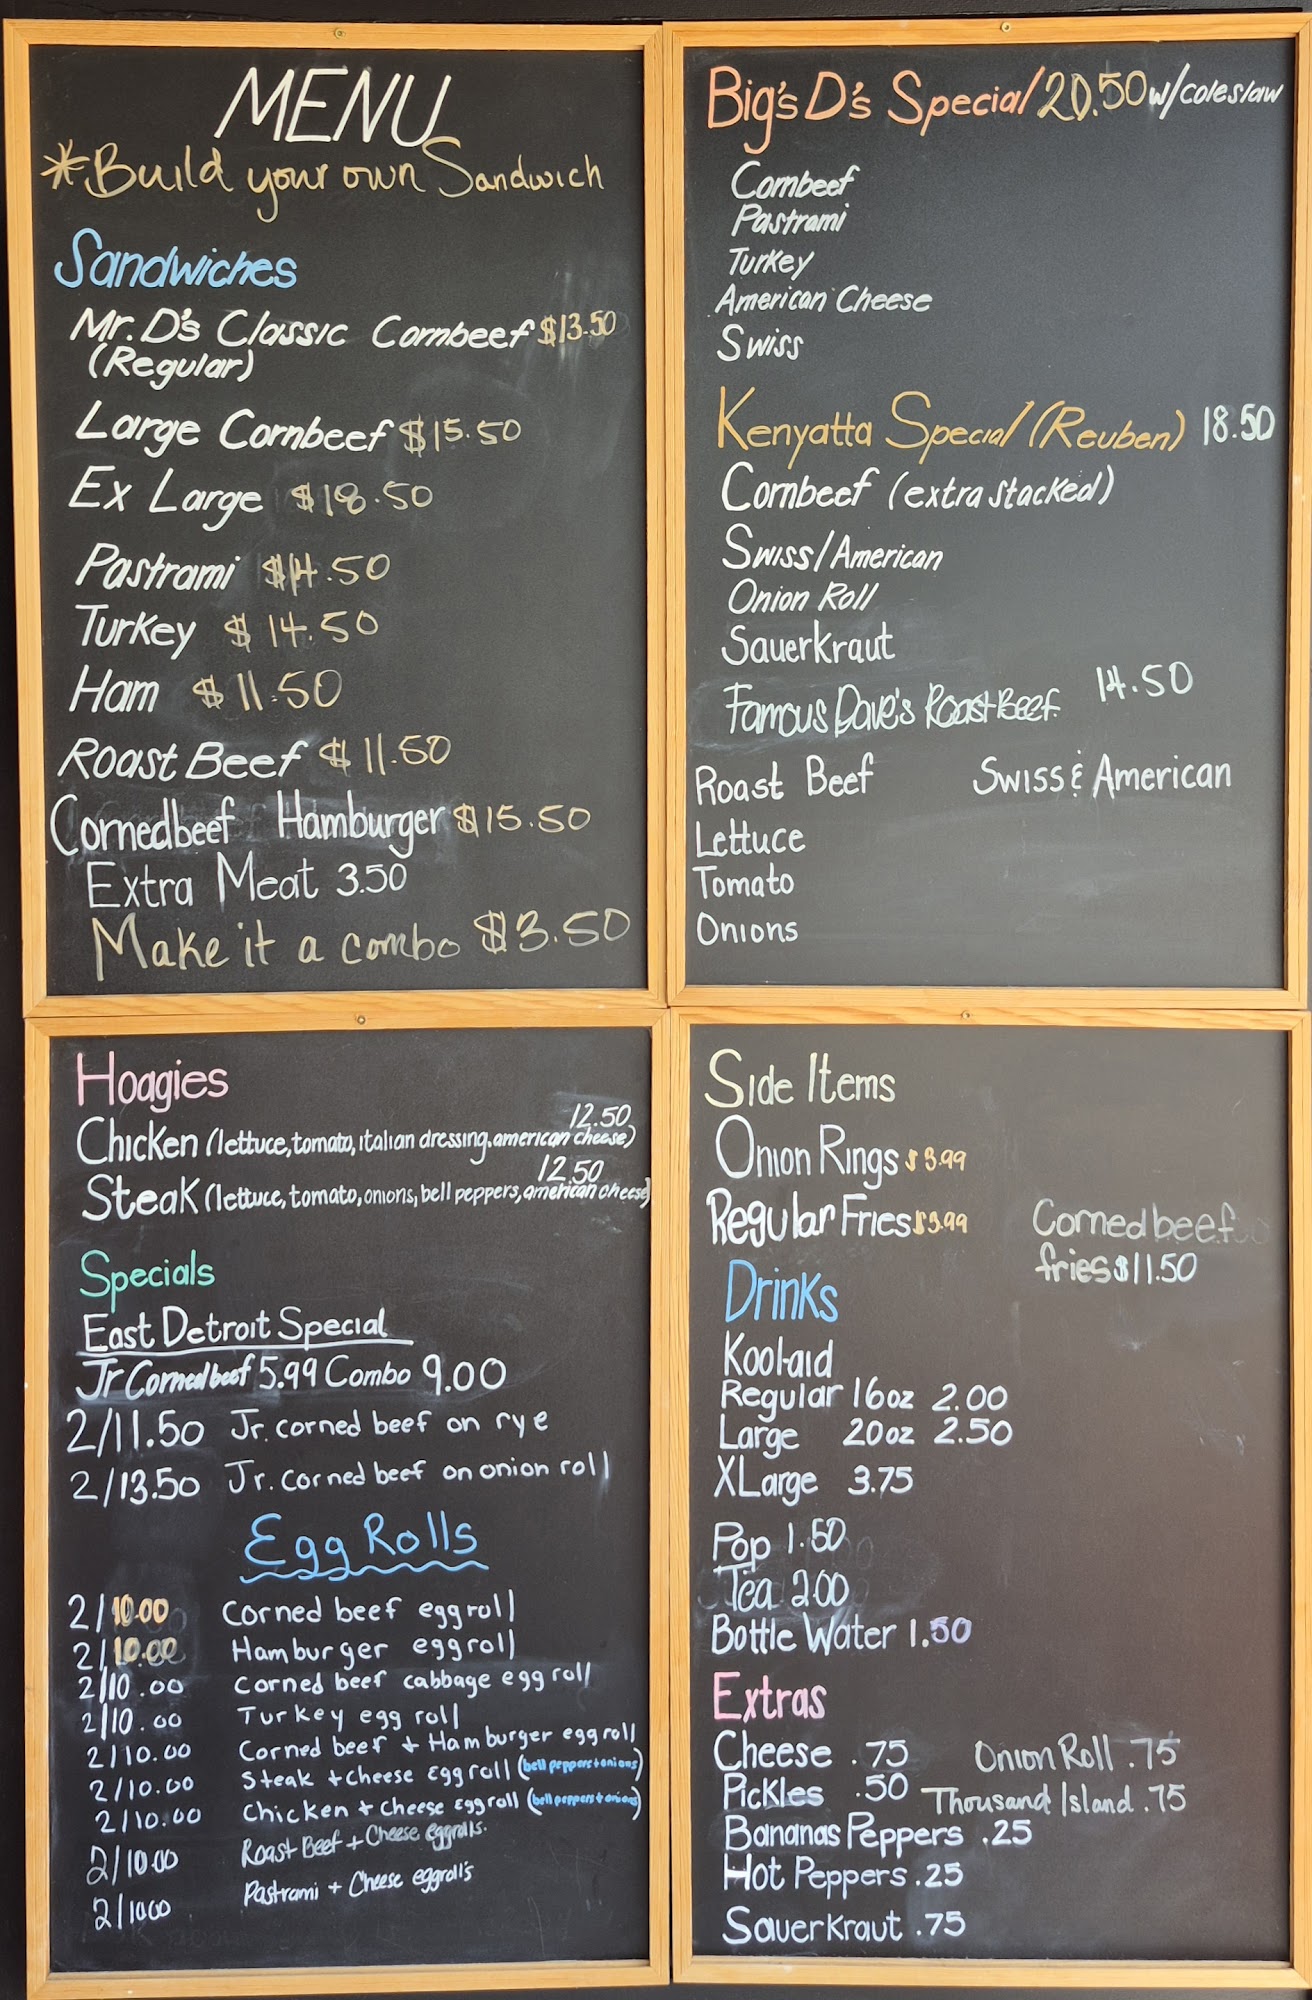 MENU
*Build your own Sandwich
Sandwiches
Mr. D's Classic Cornbeef $13.50
(Regular)
Large Cornbeef $15.50
Ex Large $18.50
Pastrami $14.50
Turkey $14.50
Ham $11.50
Roast Beef $11.50
Cornedbeef Hamburger $15.50
Extra Meat 3.50
Make it a combo $3.50
Big's D's Special 20.50 w/coleslaw
Cornbeef
Pastrami
Turkey
American Cheese
Swiss
Kenyatta Special (Reuben) 18.50
Cornbeef (extra stacked)
Swiss/American
Onion Roll
Sauerkraut
Famous Dave's Roast Beef 14.50
Roast Beef Swiss & American
Lettuce
Tomato
Onions
Hoagies
12.50
Chicken (lettuce, tomato, italian dressing, american cheese)
12.50
Steak (lettuce, tomato, onions, bell peppers, american cheese)
Specials
East Detroit Special
Jr Cornedbeef 5.99 Combo 9.00
2/11.50 Jr. corned beef on rye
2/13.50 Jr. corned beef on onion roll
Egg Rolls
2/10.00 Corned beef eggroll
2/10.00 Hamburger eggroll
2/10.00 Corned beef cabbage egg roll
2/10.00 Turkey egg roll
2/10.00 Corned beef + Hamburger egg roll
2/10.00 Steak + cheese Eggroll (bell peppers + onions)
2/10.00 Chicken + Cheese Eggroll (bell peppers + onions)
2/10.00 Roast Beef + Cheese eggrolls.
2/10.00 Pastrami + Cheese eggroll's
Side Items
Onion Rings $3.99
Regular Fries $3.99
Corned beef
fries $11.50
Drinks
Kool-aid
Regular 16oz 2.00
Large 20oz 2.50
XLarge 3.75
Pop 1.50
Tea 2.00
Bottle Water 1.50
Extras
Cheese .75 Onion Roll .75
Pickles .50 Thousand Island .75
Bananas Peppers .25
Hot Peppers .25
Sauerkraut .75